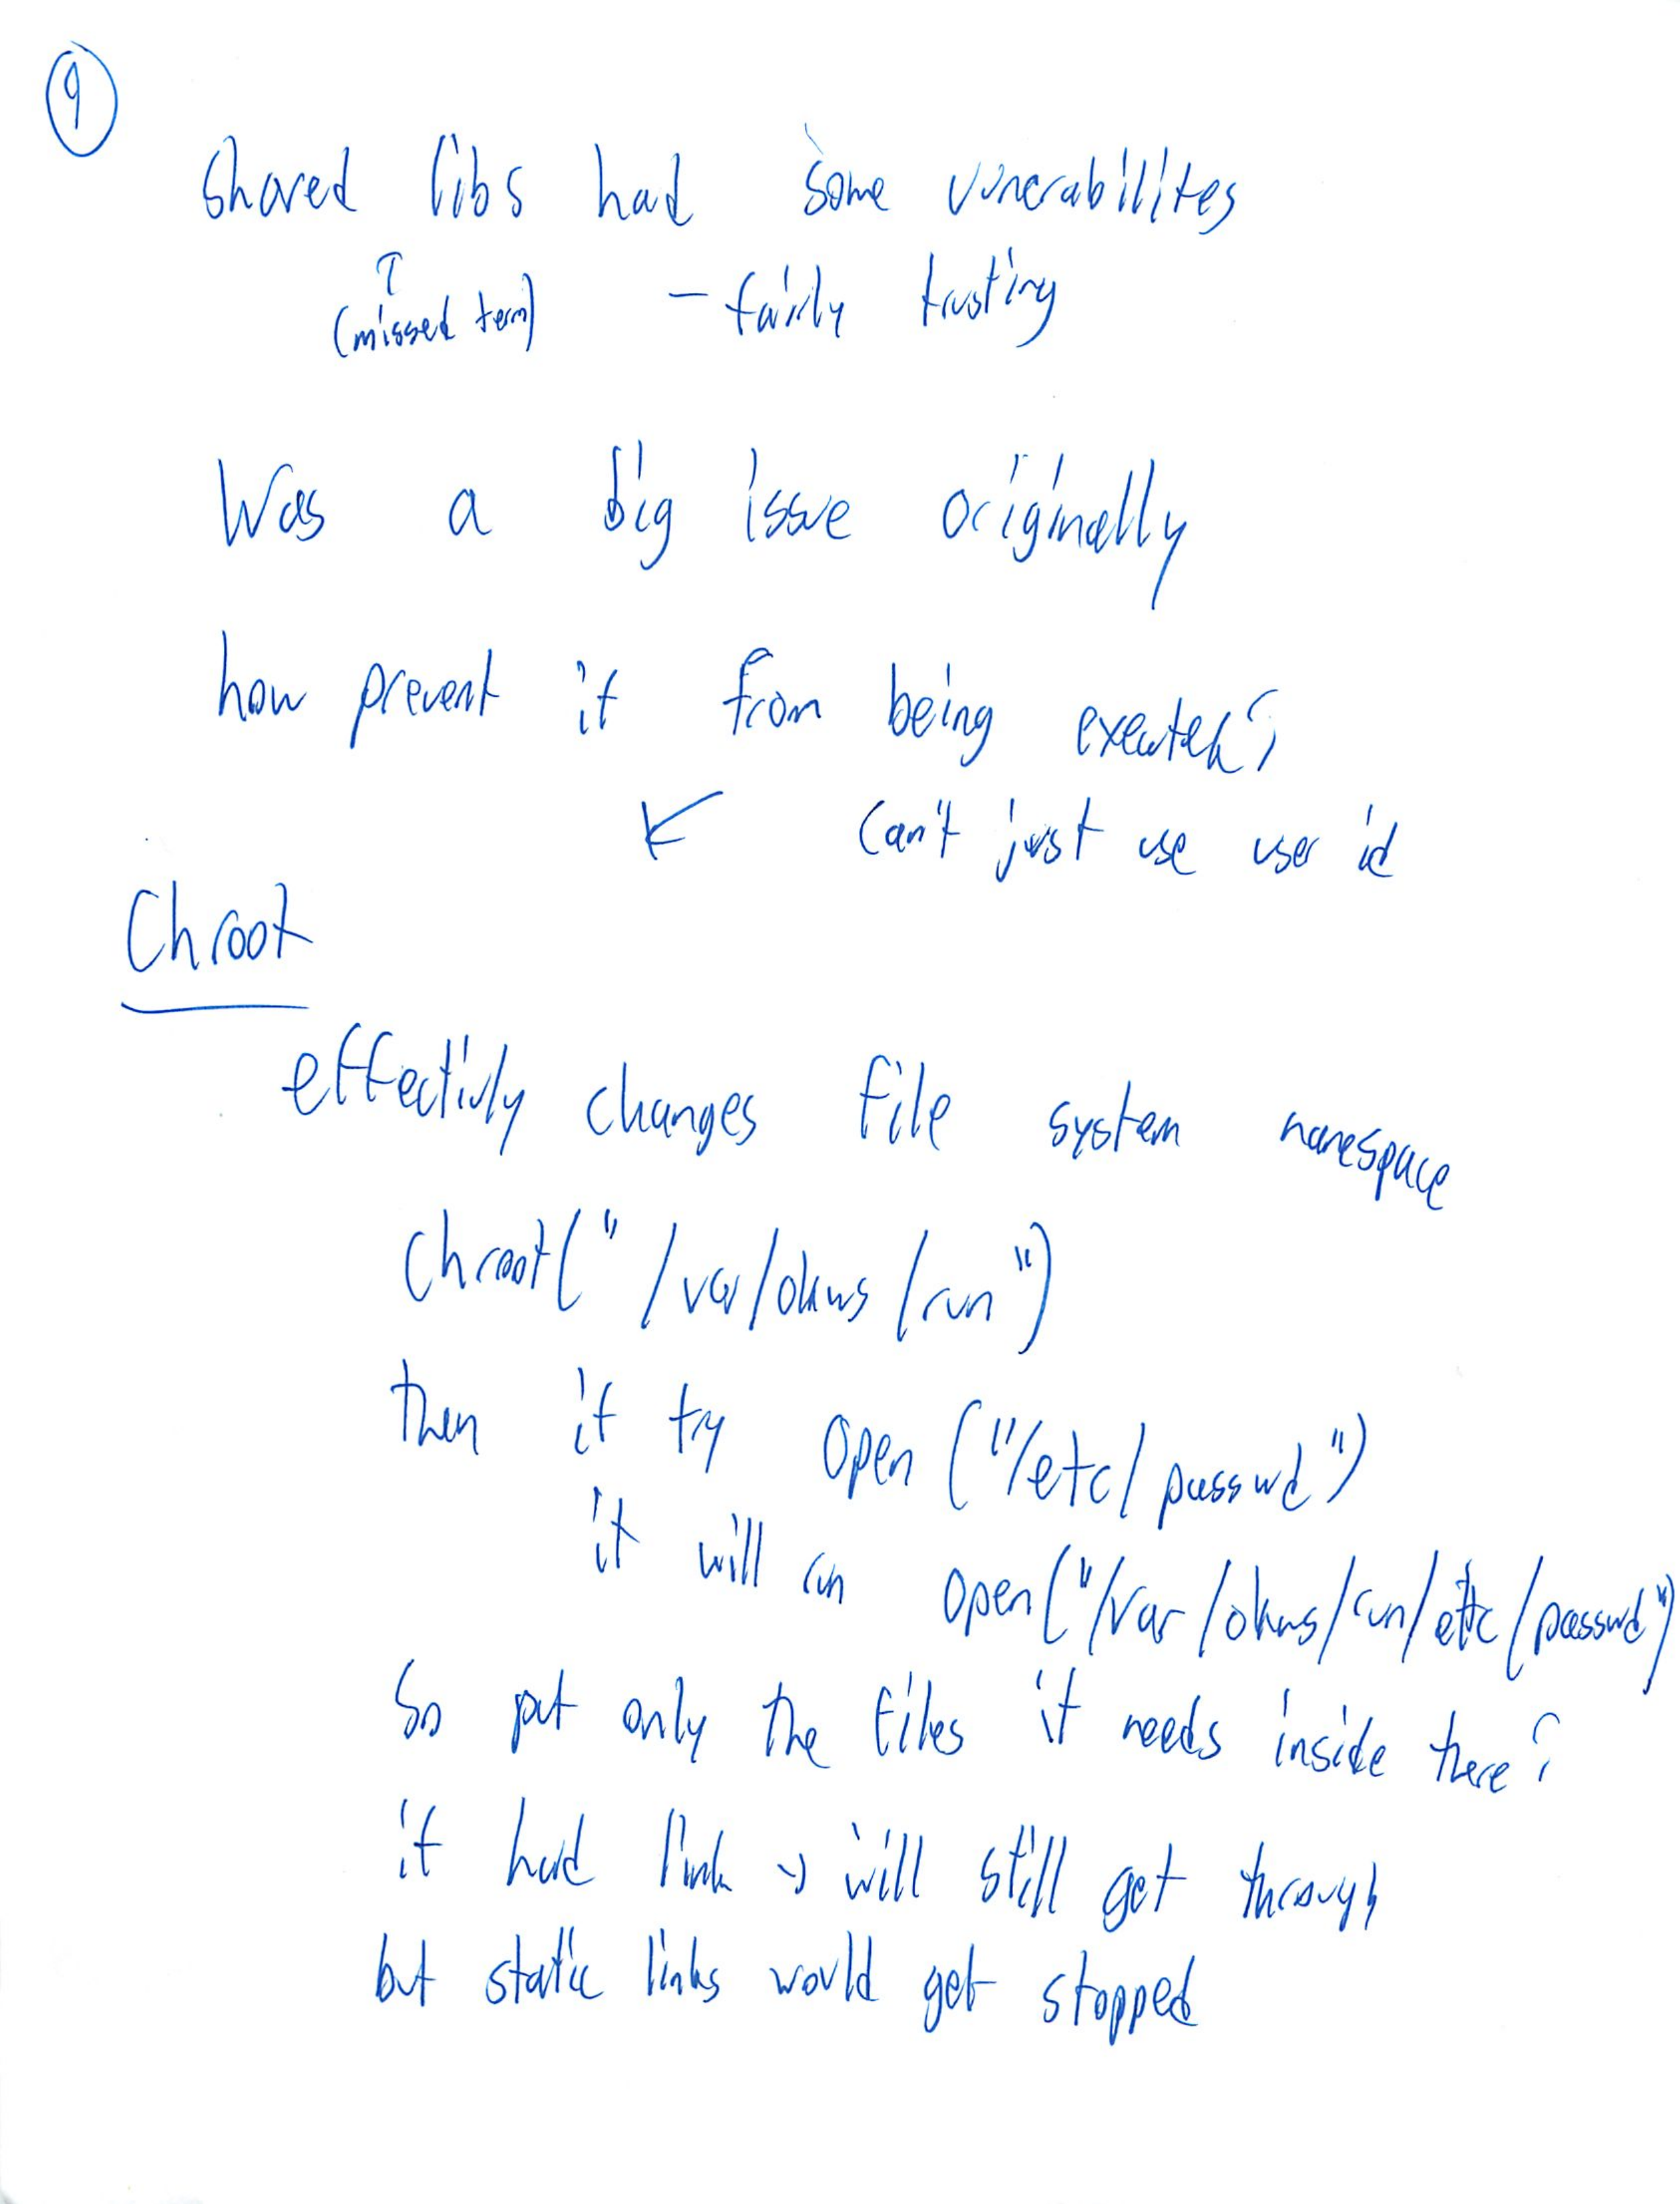 9
Shared libs had some vunerabilites
↑
(missed term) - fairly trusting
Was a big issue originally
how prevent it from being executed?
↙ Can't just use user id
Chroot
effectivly changes file system namespace
chroot("/var/okws/run")
then if try open("/etc/passwd")
it will run open("/var/okws/run/etc/passwd")
So put only the files it needs inside there?
if hard link → will still get through
but static links would get stopped